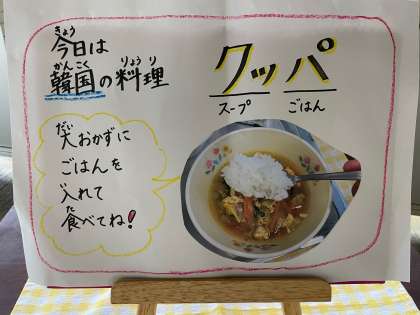 今日は
きょう
韓国の料理
かんこく りょうり
クッパ
スープ ごはん
大おかずに
だい
ごはんを
入れて
食べてね!
た